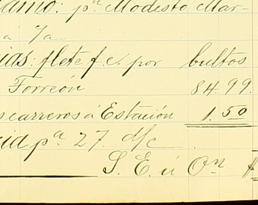 amo: pª Modesto Mar-
a %a
ias: flete f.c. por bultos
Torreón 84.99.
s carreros á Estación 1.50
cia pª 27. d/c
S. E. ú Oⁿ